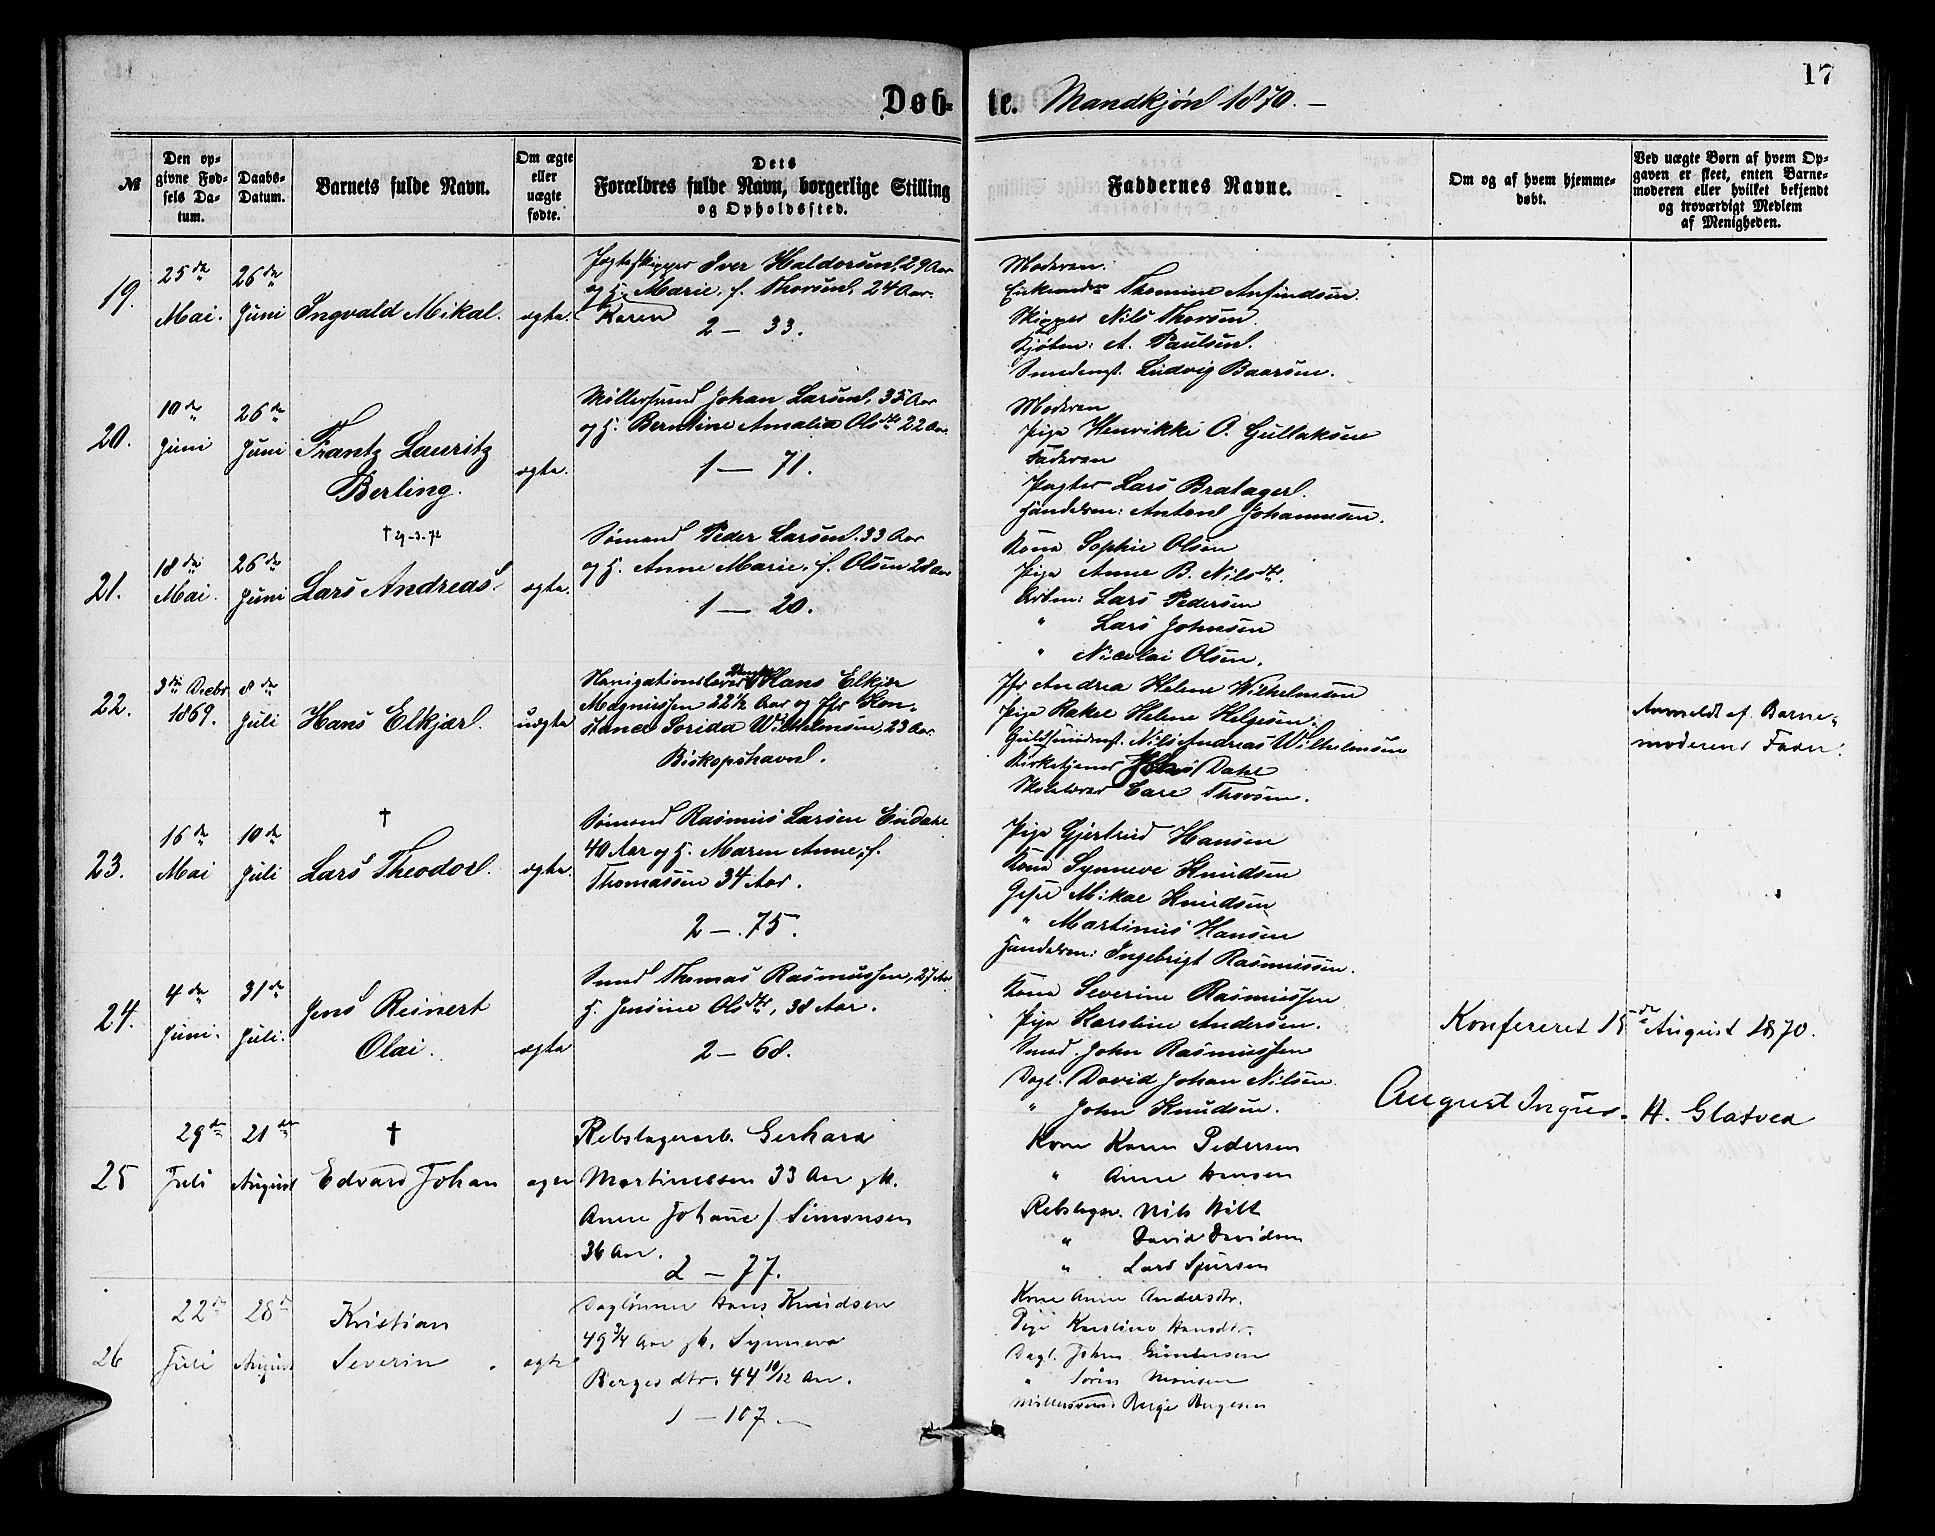 17
Døbte. Mandkjøn 1870. –
№
Den opgivne Fødsels Datum.
Daabs-Datum.
Barnets fulde Navn.
Om ægte eller uægte fødte.
Dets Forældres fulde Navn, borgerlige Stilling og Opholdssted.
Faddernes Navne.
Om og af hvem hjemmedøbt.
Ved uægte Børn af hvem Opgaven er skeet, enten Barnemoderen eller hvilket bekjendt og troværdigt Medlem af Menigheden.
19.
25de Mai.
26de Juni
Ingvald Mikal.
ægte.
Jagteskipper Iver Haldorsen, 29 Aar
og H. Marie, f. Thorsen, 24 Aar.
Karen
2 — 33.
Moderen.
Thomine Anfindsen.
Skipper Nils Thorsen.
Kjøbm: A. Paulsen.
Smedemst. Ludvig Baarsen.
20.
10de Juni
26de Juni
Frantz Lauritz
Berling.
ægte.
Møllersvend Johan Larsen, 35 Aar
og H. Berntine Amalia Olsdtr 22 Aar.
1 — 71.
Moderen
Pige Henrikke O. Gullaksen
Faderen
Lars Bratager.
Handelsm: Anton Johannesen.
21.
18de Mai.
26de Juni
† 29-3-72
Lars Andreas.
ægte.
Sømand Peder Larsen, 33 Aar
og H. Anne Marie, f. Olsen 28 Aar
1 — 20.
Kone Sophie Olsen
Pige Anne B. Nilsdtr.
Arbm: Lars Pedersen
" Lars Johnsen
" Nicolai Olsen.
22.
3die Decbr 1869.
8de Juli
Hans Elkjær.
uægte
Navigationslærer Hans Elkjær
Magnussen 22½ Aar og Pfr Kon-
stance Lorida Wilhelmsen, 23 Aar
Biskopshavn.
Jfr Andrea Helene Wilhelmsen
Pige Rakel Helene Helgesen.
Guldsmedmst. Nils Andreas Wilhelmsen
Kirketjener Dahl
Skolelærer Carl Thorsen.
Anmeldt af Barne-
moderens Fader.
23.
16de Mai
10de Juli
†
Lars Theodor.
ægte.
Sømand Rasmus Larsen Endahl
40 Aar og H. Maren Anne, f.
Thomassen 34 Aar.
2 — 75.
Pige Gjertrud Hansen
Kone Synneve Knudsen
Mikal Knudsen
" Martinus Hansen
Handelsm: Ingebrigt Rasmussen.
24.
4de Juni.
31de Juli.
Jens Reinert
Olai.
ægte
Smed Thomas Rasmussen, 27 Aar
H. Jensine Olsdtr, 38 Aar.
2 — 68.
Kone Severine Rasmussen
Pige Karoline Andersen.
Smed. John Rasmussen
Dagl. David Johan Nilsen.
" John Knudsen.
Konfereret 15de August 1870.
August Ingier. H. Glatved
25
29de Juli
21de August
†
Edvard Johan
ægte
Rebslagerarb. Gerhard
Martinussen 33 Aar gH.
Anne Johane f. Simonsen
36 Aar.
2 — 77.
Kone Karen Pedersen
" Anne Hansen
Rebslager. Nils Hill
" David Davidsen
" Lars Sjursen
26
22de Juli
28de August
Kristian
Severin
ægte
Daglønner Hans Knudsen
49¾ Aar gH. Synneva
Bergesdtr. 44 10/12 Aar.
1 — 107.
Kone Anne Andersdtr.
Pige Karoline Hansdtr.
Dagl. Johan Gundersen
" Søren Monsen
Møllersvend Berge Bergesen